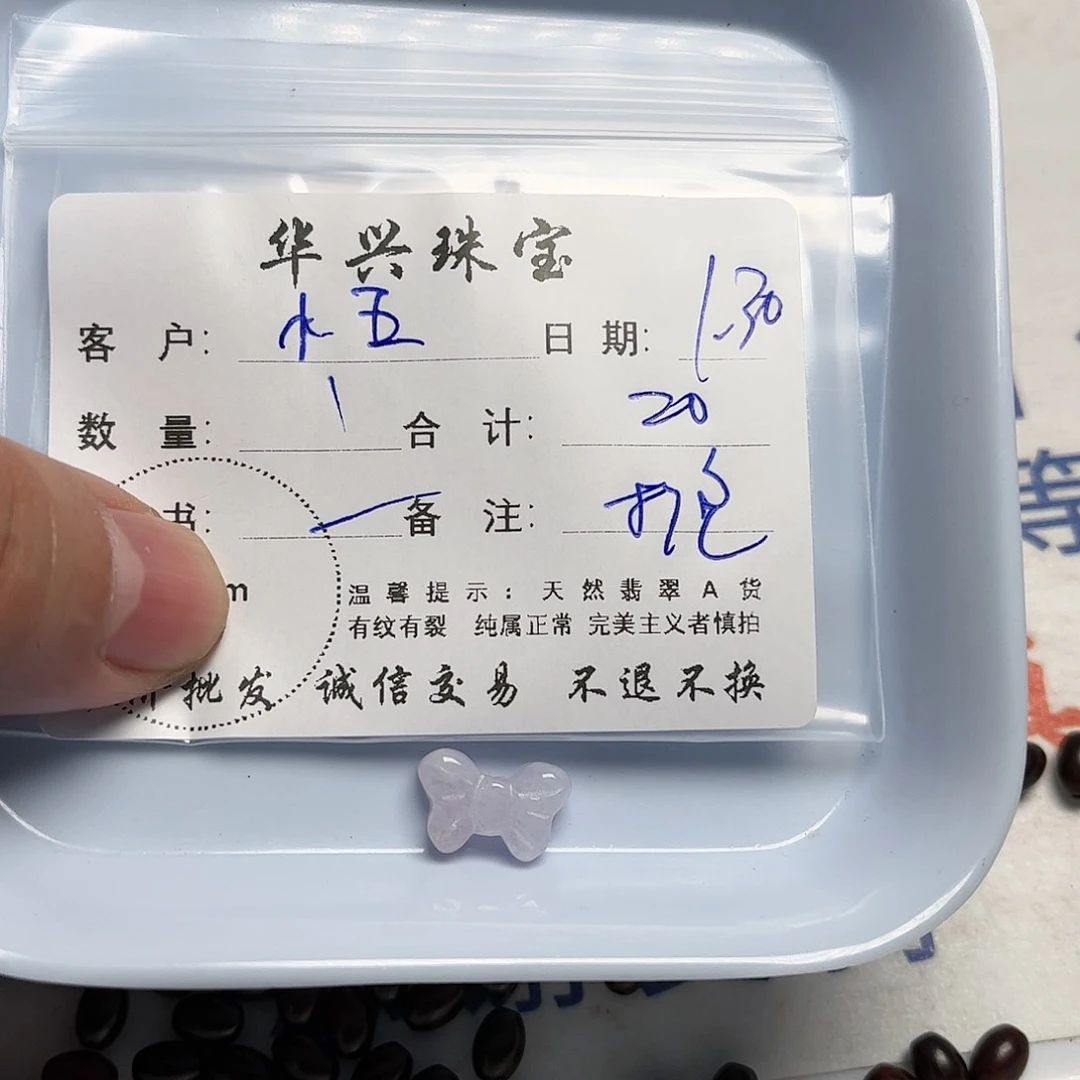 华兴珠宝
客 户: 水五 日 期: 1-30
数 量: 1 合 计: 20
书: 备 注:
m 温馨提示: 天然翡翠A货
有纹有裂 纯属正常 完美主义者慎拍
批发 诚信交易 不退不换